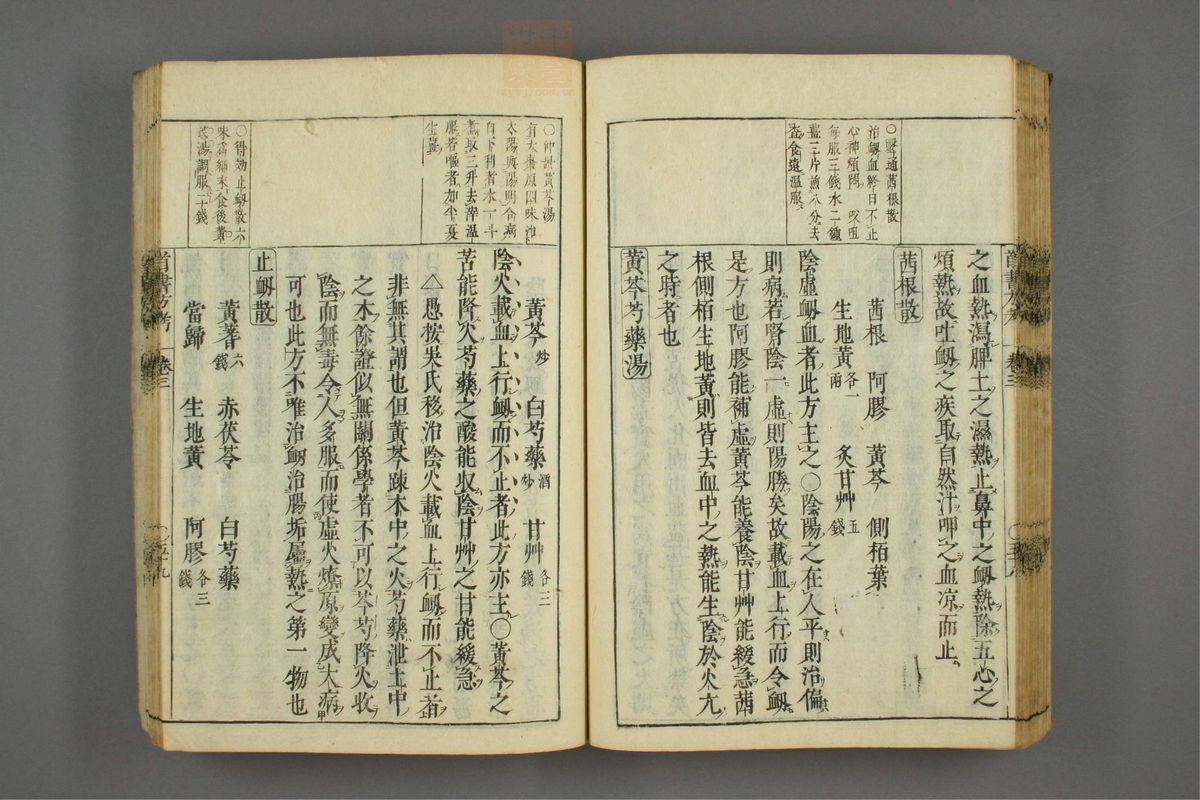 ○聖通茜根散
治衂血終日不止
心神煩悶　㕮咀
每服三錢水二鍾
薑三片煎八分去
查食遠溫服
之血熱瀉脾土之濕熱止鼻中之衂熱除五心之
煩熱故吐衂之疾取自然汁呷之血凉而止
茜根散
茜根　阿膠　黃芩　側栢葉
生地黃各一兩　炙甘艸五錢
陰虛衂血者此方主之○陰陽之在人平則治偏
則病若腎陰一虛則陽勝矣故載血上行而令衂
是方也阿膠能補虛黃芩能養陰甘艸能緩急茜
根側栢生地黃則皆去血中之熱能生陰於火亢
之時者也
黃芩芍藥湯
○仲景黃芩湯
有大棗原四味治
太陽與陽明合病
自下利者水一斗
煮取三升去滓溫
服若嘔者加半夏
生薑
黃芩炒　白芍藥酒炒　甘艸各二錢
陰火載血上行衂而不止者此方亦主○黃芩之
苦能降火芍藥之酸能收陰甘艸之甘能緩急
△愚按吳氏移治陰火載血上行衂而不止者
非無其謂也但黃芩疎木中之火芍藥泄土中
之木餘證似無關係學者不可以芩芍降火收
陰而無毒令人多服而使虛火燎原變成大病
可也此方不唯治衂治腸垢屬熱之第一物也
○得効止衂散六
味爲細末食後黃
湯調服二十錢
止衂散
黃蓍六錢　赤茯苓　白芍藥
當歸　生地黃　阿膠各三錢
首書方考　卷三
首書方考　卷三　五十九